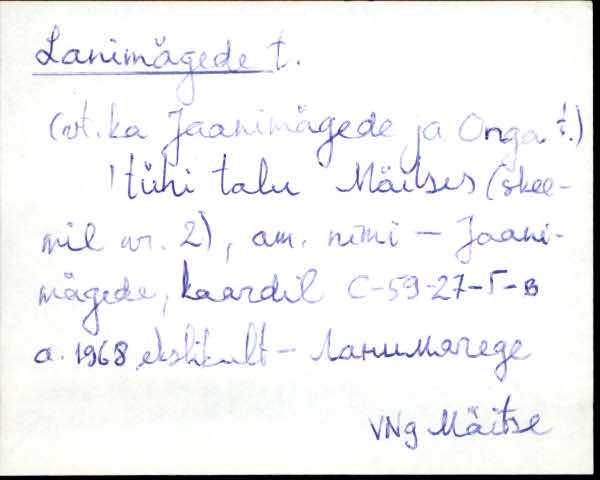 Lanimägede t.
(vt. ka Jaanimägede ja Onga t.)
! tühi talu Mäitses (skee-
mil nr. 2), am. nimi – Jaani-
mägede, kaardil C-59-27-Г-в
a. 1968 ekslikult – Ланимягеде
VNg Mäitse